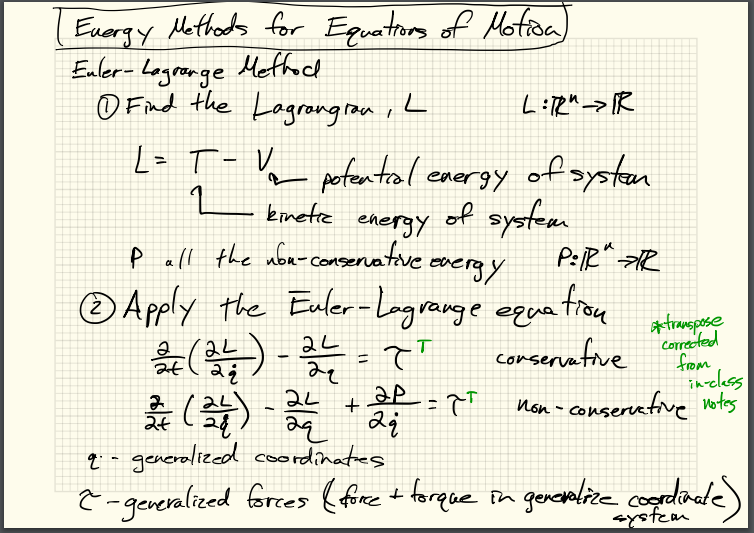 Energy Methods for Equations of Motion
Euler-Lagrange Method
① Find the Lagrangian, L L:ℝⁿ→ℝ
L = T - V
potential energy of system
kinetic energy of system
P all the non-conservative energy P:ℝⁿ→ℝ
② Apply the Euler-Lagrange equation
∂/∂t (∂L/∂q̇) - ∂L/∂q = τᵀ conservative
∂/∂t (∂L/∂q̇) - ∂L/∂q + ∂P/∂q̇ = τᵀ non-conservative
*transpose
corrected
from
in-class
notes
q - generalized coordinates
τ - generalized forces (force + torque in generalize coordinate
system)